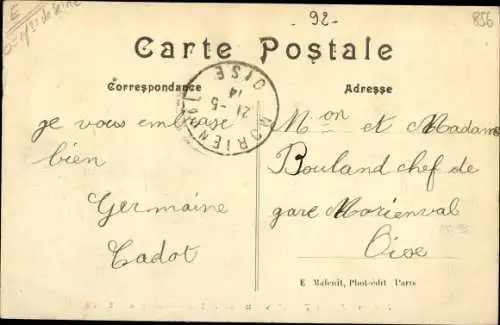 E
92-
856
Carte Postale
Correspondance
Adresse
MORIENVAL
21-5
14
OISE
je vous embrasse
bien
Germaine
Cadot
Mon et Madame
Bouland chef de
gare Morienval
Oise
E Malcuit, Phot-édit Paris